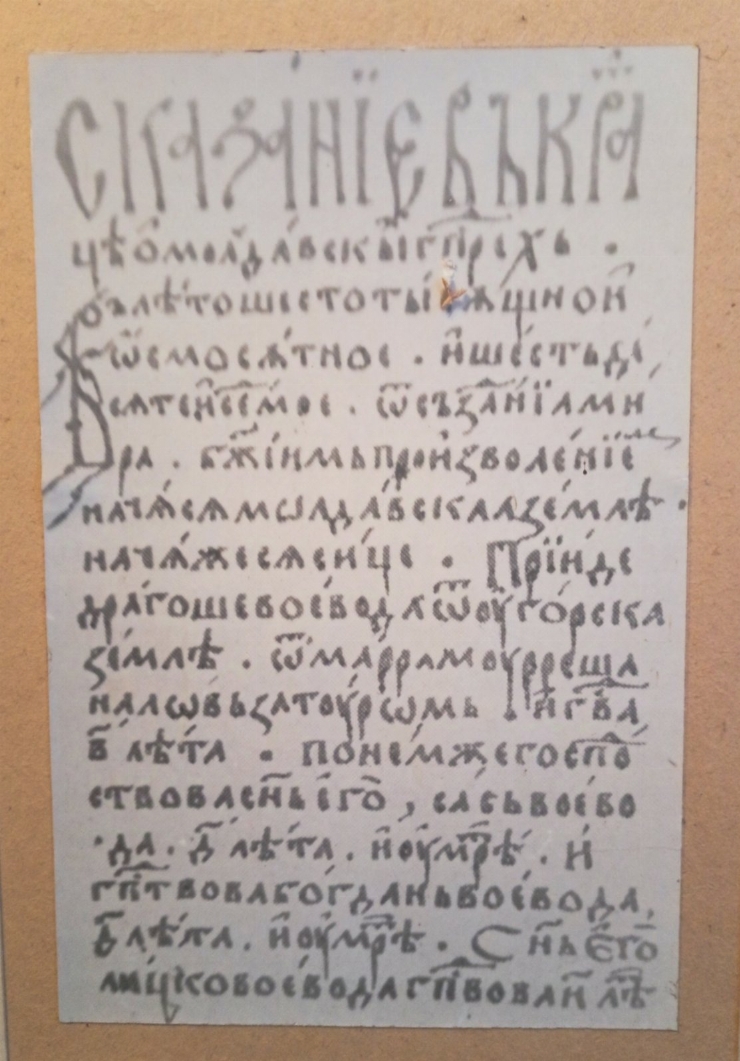 СКАЗАНЇЕ ВЪКРА
цѣ ѡ молдавскыⷯ гпⷭ҇рехь .
Въ лѣто шестотыⷭ҇ѧщной
ѡсмосѧтное . и҆ шестьде
сѧте и҆ се҃мое . ѿ съзⷣанїа ми
ра . бж҃їимь произволенїеⷨ
начѧсѧ мѡлдавскаа земль .
начѧ же сѧ сице . Прїиде
драгоше воевода ѿ оу҆горска
земль . ѿ маррамоурреша
на ловь за тоуромь . и҆ гпⷭ҇ва
в҃ лѣта . по нем же госпⷣо
ствова сн҃ь е҆го , сась воево
да . д҃ лѣта . и҆ оу҆мрⷮѣ . и҆
гпⷭ҇твова богдань воевода ,
д҃ лѣта . и҆ оу҆мрⷮѣ . Сн҃ь е҆го
лацко воевода гпⷭ҇вова и҃ лѣⷮ